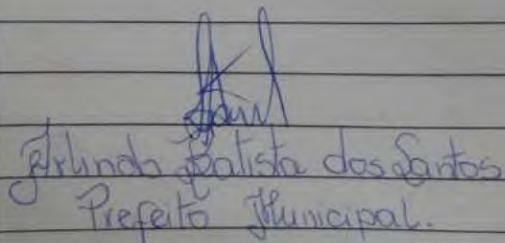 Arlindo Batista dos Santos
Prefeito Municipal.